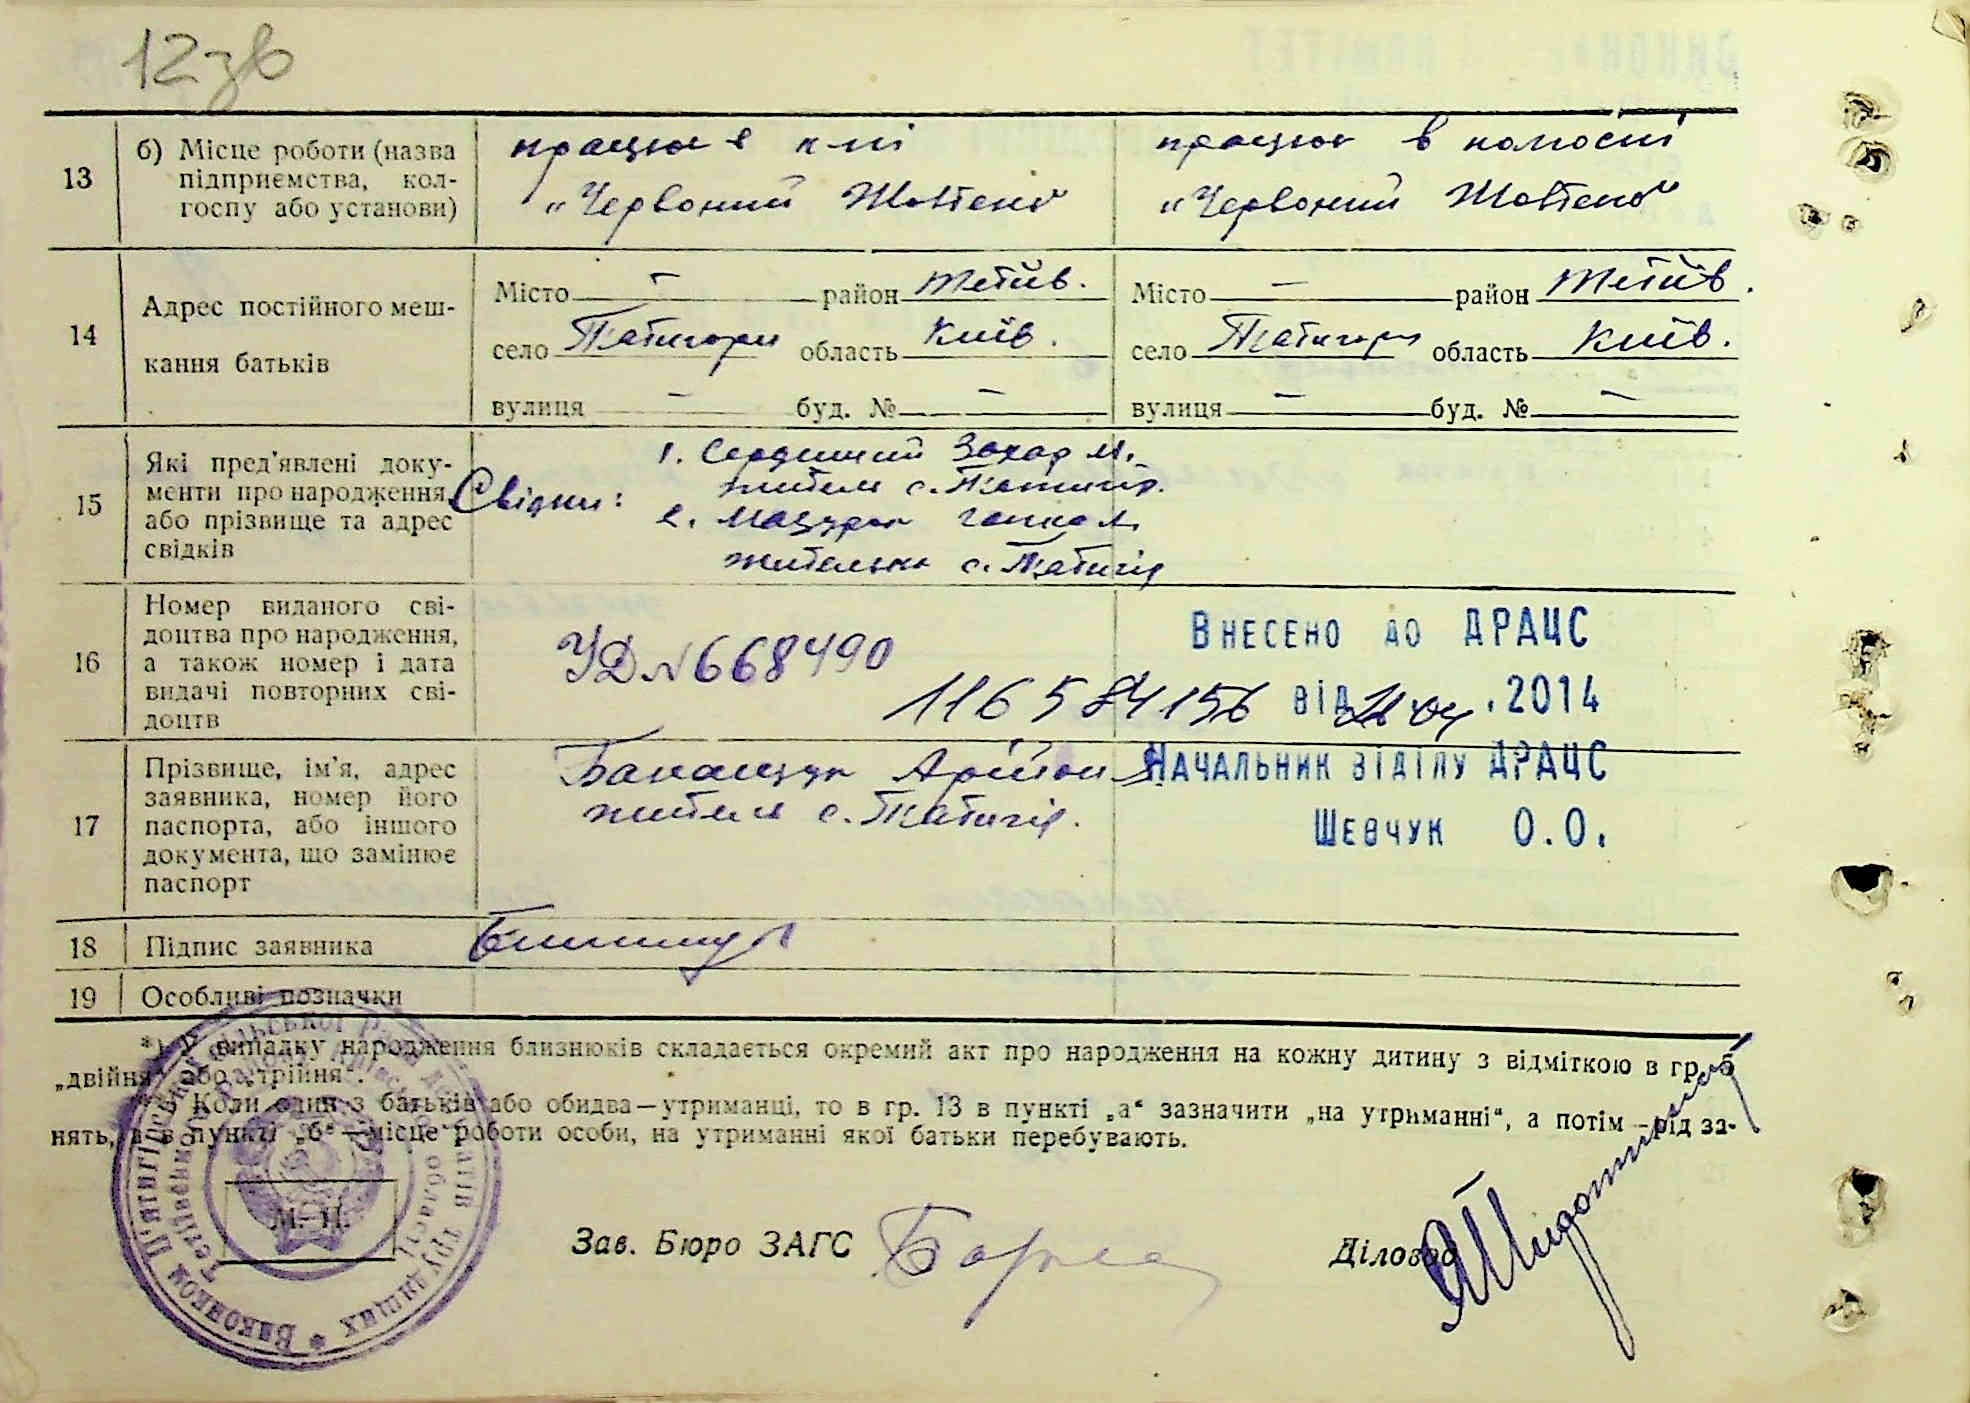 12зв
13
б) Місце роботи (назва
підприємства, кол-
госпу або установи)
працює в к-пі
„Червоний Жовтень"
працює в колгоспі
„Червоний Жовтень"
14
Адрес постійного меш-
кання батьків
Місто — район Тетіїв.
село П'ятигори область Київ.
вулиця — буд. № —
Місто — район Тетіїв.
село П'ятигори область Київ.
вулиця — буд. № —
15
Які пред'явлені доку-
менти про народження,
або прізвище та адрес
свідків
Свідки:
1. Захар М.
житель с. П'ятигір.
2. Мазурок Ганна
жителька с. П'ятигір
16
Номер виданого сві-
доцтва про народження,
а також номер і дата
видачі повторних сві-
доцтв
УД № 668490
Внесено до ДРАЦС
116584156 від .2014
Начальник відділу ДРАЦС
Шевчук О.О.
17
Прізвище, ім'я, адрес
заявника, номер його
паспорта, або іншого
документа, що замінює
паспорт
Баканщук
житель с. П'ятигір.
18
Підпис заявника
19
Особливі позначки
*) У випадку народження близнюків складається окремий акт про народження на кожну дитину з відміткою в гр. 6
„двійня" або „трійня".
Коли один з батьків або обидва—утриманці, то в гр. 13 в пункті „а" зазначити „на утриманні", а потім—рід за-
нять, а в пункті „б"—місце роботи особи, на утриманні якої батьки перебувають.
Виконком П'ятигірської сільської Ради депутатів трудящих
Тетіївського району Київської області
М. П.
Зав. Бюро ЗАГС
Діловод